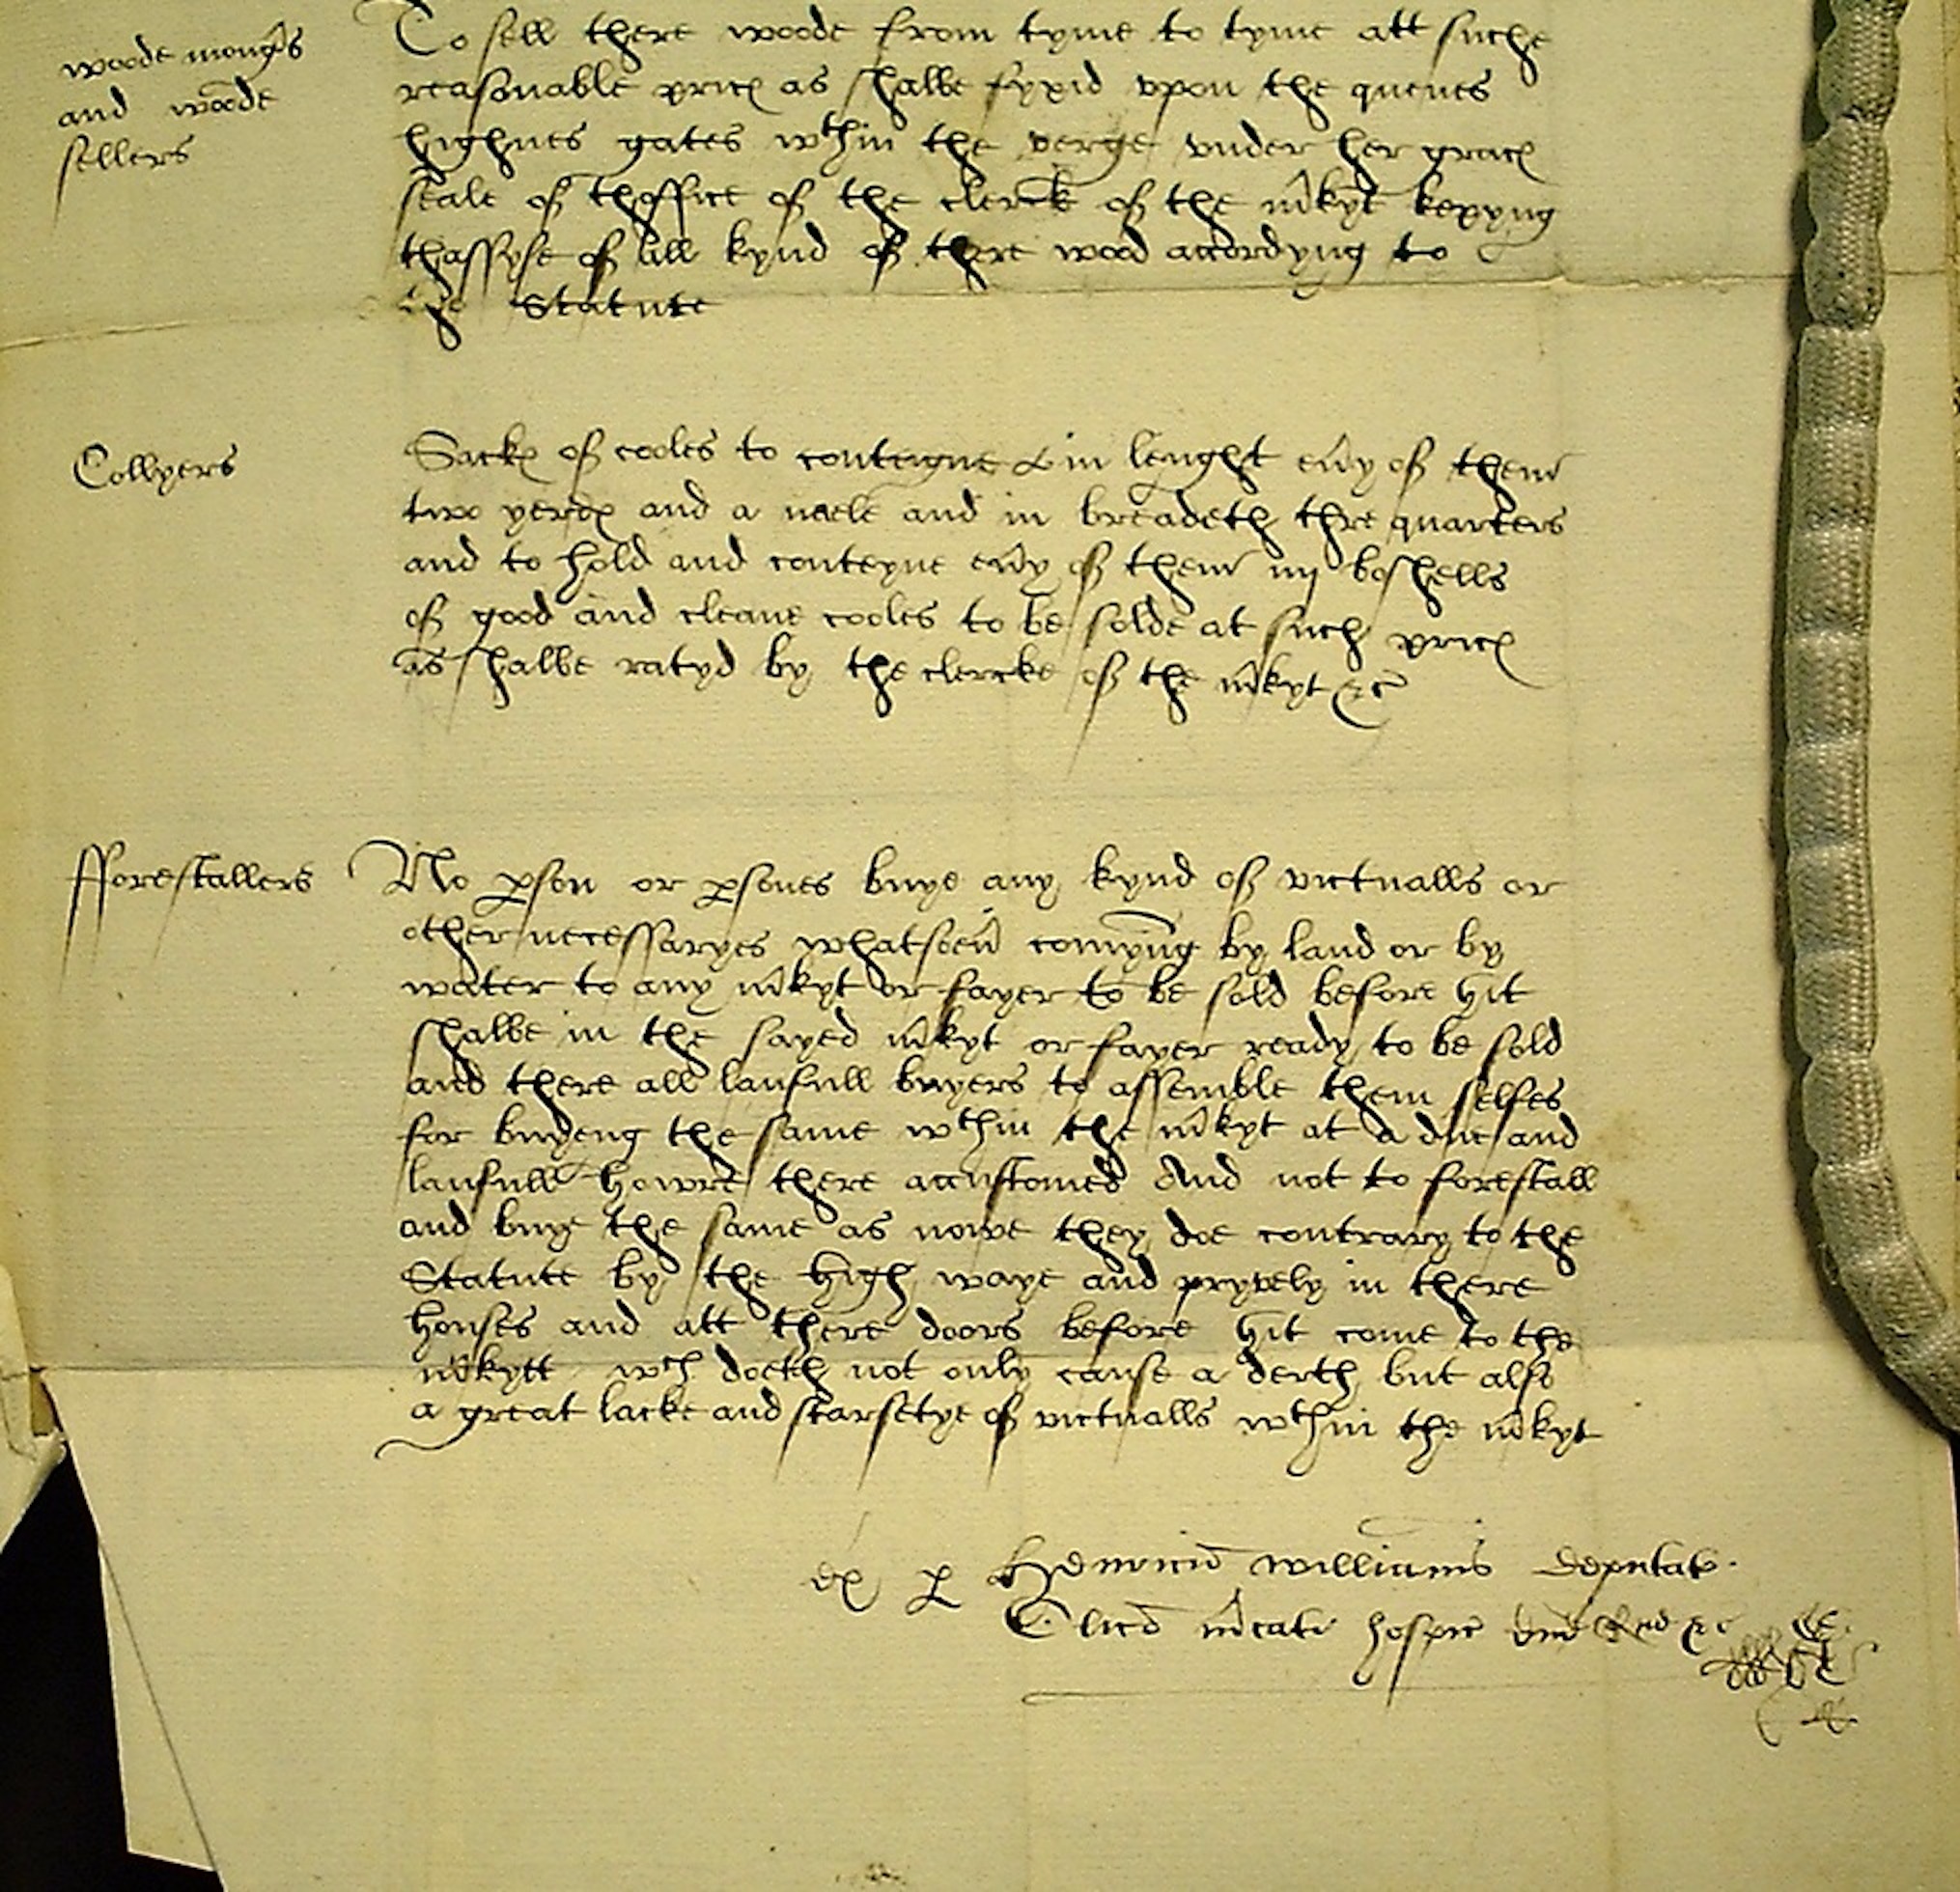 woode mong's
and woode
sellers
To sell there woode from tyme to tyme att suche
reasonable prices as shalbe fyxid vpon the quenes
highnes gates wthin the verge vnder her graces
seale of thoffice of the clerck of the m'kyt kepyng
thassyse of all kynd of there wood accordyng to
the Statute
Collyers
Sackes of cooles to conteigne in lenght eu'y of them
two yerdes and a naele and in breadeth thre quarters
and to hold and conteyne eu'y of them iiij boshells
of good and cleane cooles to be solde at such prices
as shalbe ratyd by the clercke of the m'kyt &c
fforestallers
No pson or psones buye any kynd of victualls or
other necessaryes whatsoeu' comyng by land or by
water to any m'kyt or fayer to be sold before hit
shalbe in the sayed m'kyt or fayer ready to be sold
and there all laufull buyers to assemble them selfes
for buyeng the same wthin the m'kyt at a due and
laufull howre there accustomed And not to forestall
and buye the same as nowe they doe contrary to the
Statute by the high waye and pryvely in there
houses and att there doors before hit come to the
m'kytt wch doeth not only cause a derth but also
a great lacke and scarsetye of victualls wthin the m'kyt
ex p Henricu' williams deputat'
Clico m'cati hospic dne Rne &c